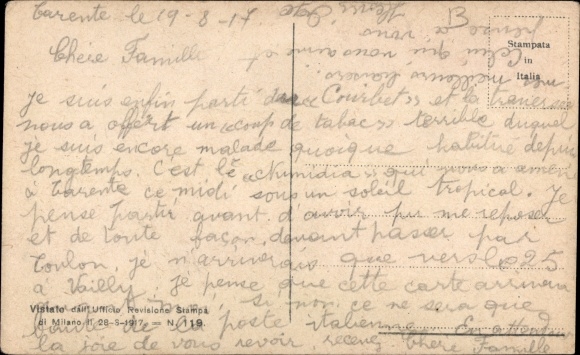 Tarente le 19-8-17
Chère Famille
Je suis enfin parti du « Courbet » et la traversée
nous a offert un « coup de tabac » terrible duquel
je suis encore malade quoique habitué depuis
longtemps. C'est le « Numidia » qui nous a amené
à Tarente ce midi sous un soleil tropical. Je
pense partir avant d'avoir pu me reposer
et de toute façon, devant passer par
Toulon, je n'arriverai que vers le 25
à Vailly. Je pense que cette carte arrivera
avant moi, si non, ce ne sera que
de la poste italienne. En attendant
la joie de vous revoir recevez Chère Famille
mes meilleurs baisers.
Celui qui vous aime et
pense à vous
Stampata
in
Italia
Vistato dall'Ufficio Revisione Stampa
di Milano il 28-3-1917 — N. 119.